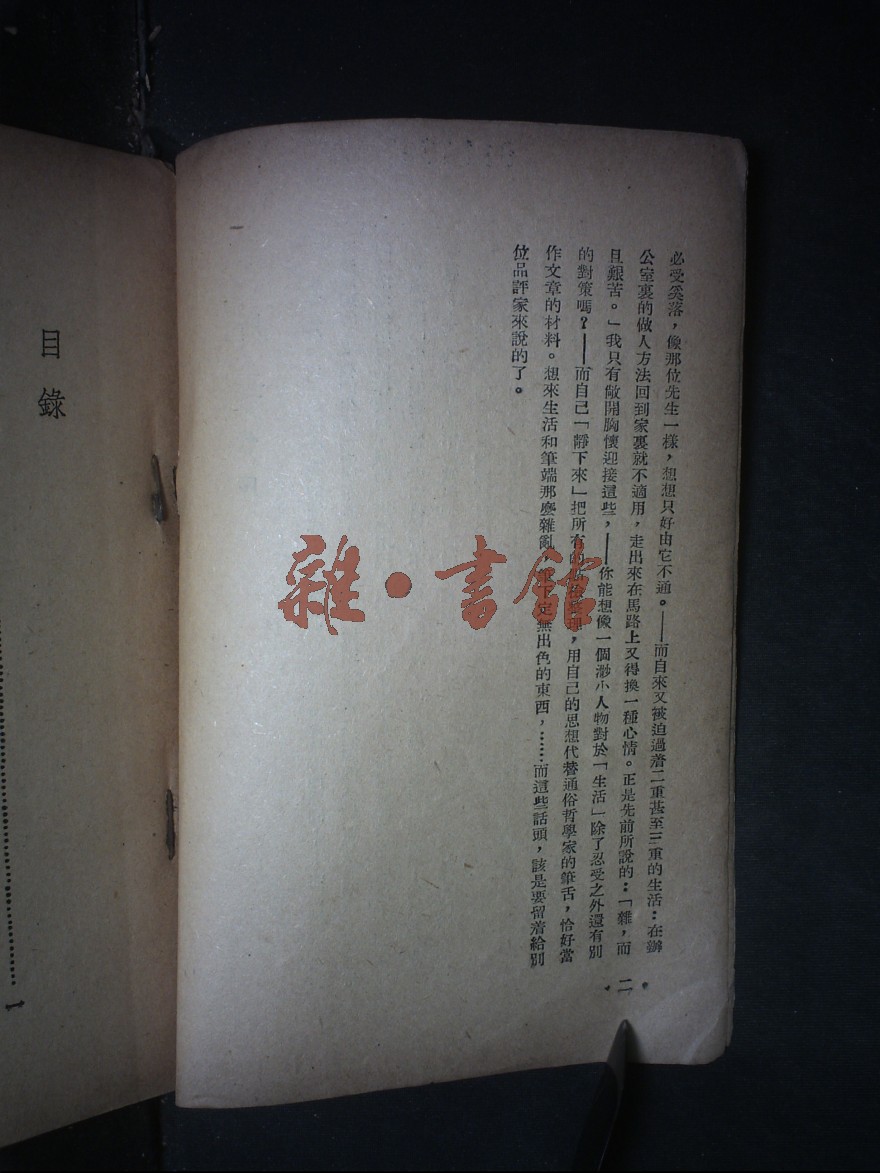 必受奚落，像那位先生一樣，想想只好由它不通。——而自來又被迫過着二重甚至三重的生活：在辦
公室裏的做人方法回到家裏就不適用，走出來在馬路上又得換一種心情。正是先前所說的：「雜，而
且艱苦。」我只有敞開胸懷迎接這些，——你能想像一個渺小人物對於「生活」除了忍受之外還有別
的對策嗎？——而自己「靜下來」把所有的，用自己的思想代替通俗哲學家的筆舌，恰好當
作文章的材料。想來生活和筆端那麼雜亂，無出色的東西，……而這些話頭，該是要留着給別
位品評家來說的了。
二
目錄
1
雜·書館